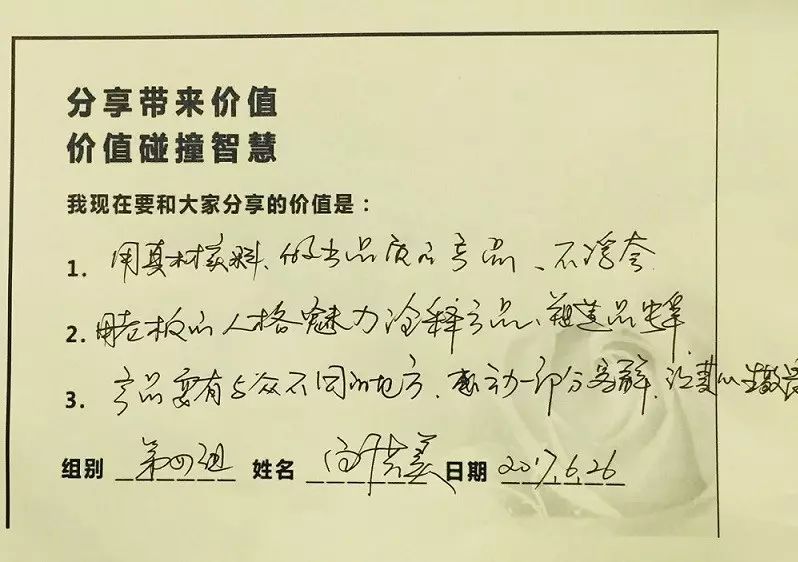 分享带来价值
价值碰撞智慧
我现在要和大家分享的价值是：
1. 用真材实料、做出品质的产品、不浮夸
2. 用老板的人格魅力诠释产品、塑造品牌
3. 产品要有与众不同的地方、感动一部分客群、
组别 第四组 姓名 日期 2017.6.26